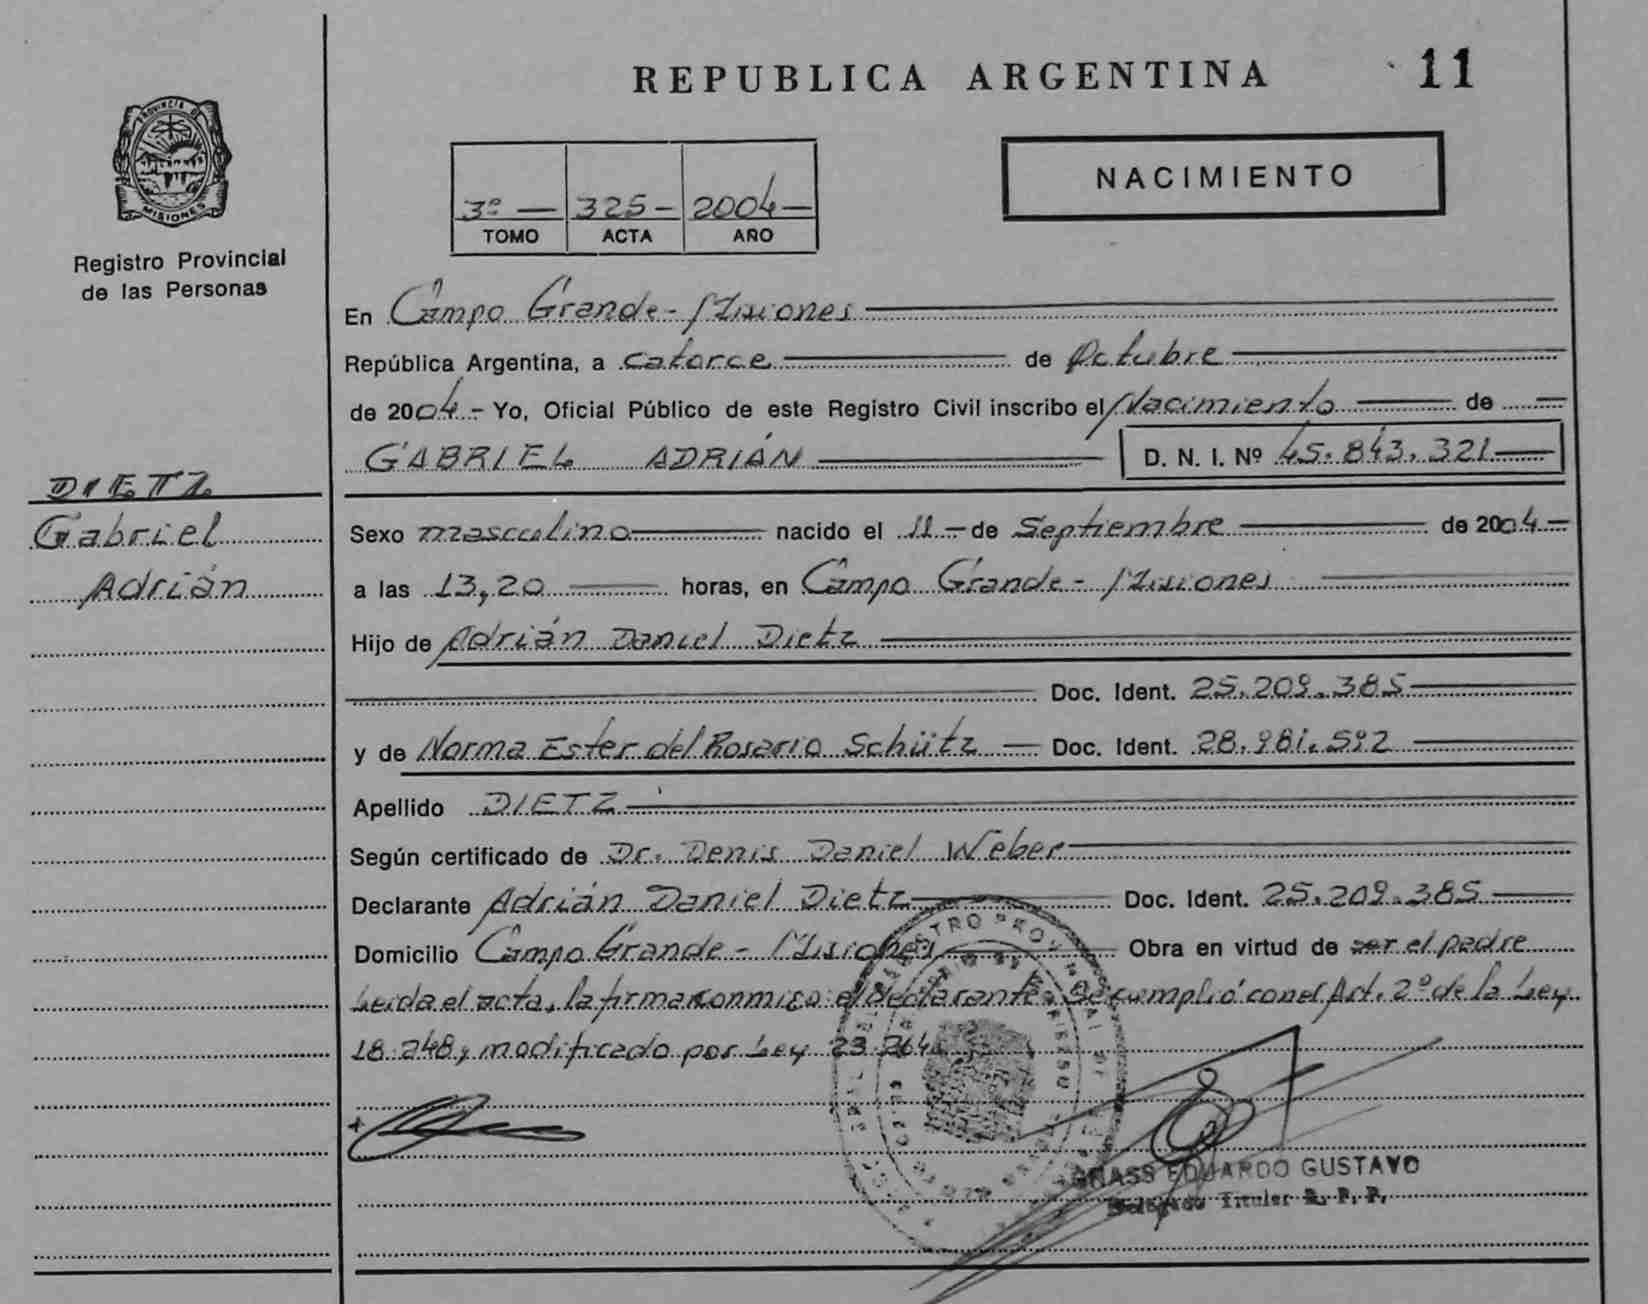 REPUBLICA ARGENTINA 11
PROVINCIA DE
MISIONES
Registro Provincial
de las Personas
3º 325 2004
TOMO ACTA AÑO
NACIMIENTO
En Campo Grande - Misiones
República Argentina, a catorce de Octubre
de 2004 - Yo, Oficial Público de este Registro Civil inscribo el Nacimiento de
GABRIEL ADRIÁN D. N. I. Nº 45.843.321
DIETZ
Gabriel
Adrián
Sexo masculino nacido el 11 de Septiembre de 2004
a las 13,20 horas, en Campo Grande - Misiones
Hijo de Adrián Daniel Dietz
Doc. Ident. 25.209.385
y de Norma Ester del Rosario Schütz Doc. Ident. 28.981.592
Apellido DIETZ
Según certificado de Dr. Denis Daniel Weber
Declarante Adrián Daniel Dietz Doc. Ident. 25.209.385
Domicilio Campo Grande - Misiones Obra en virtud de ser el padre
Leida el acta, la firma conmigo el declarante. Se cumplió con el Art. 2º de la Ley
18.248, modificado por Ley 23.264
GRASS EDUARDO GUSTAVO
Delegado Titular R. P. P.